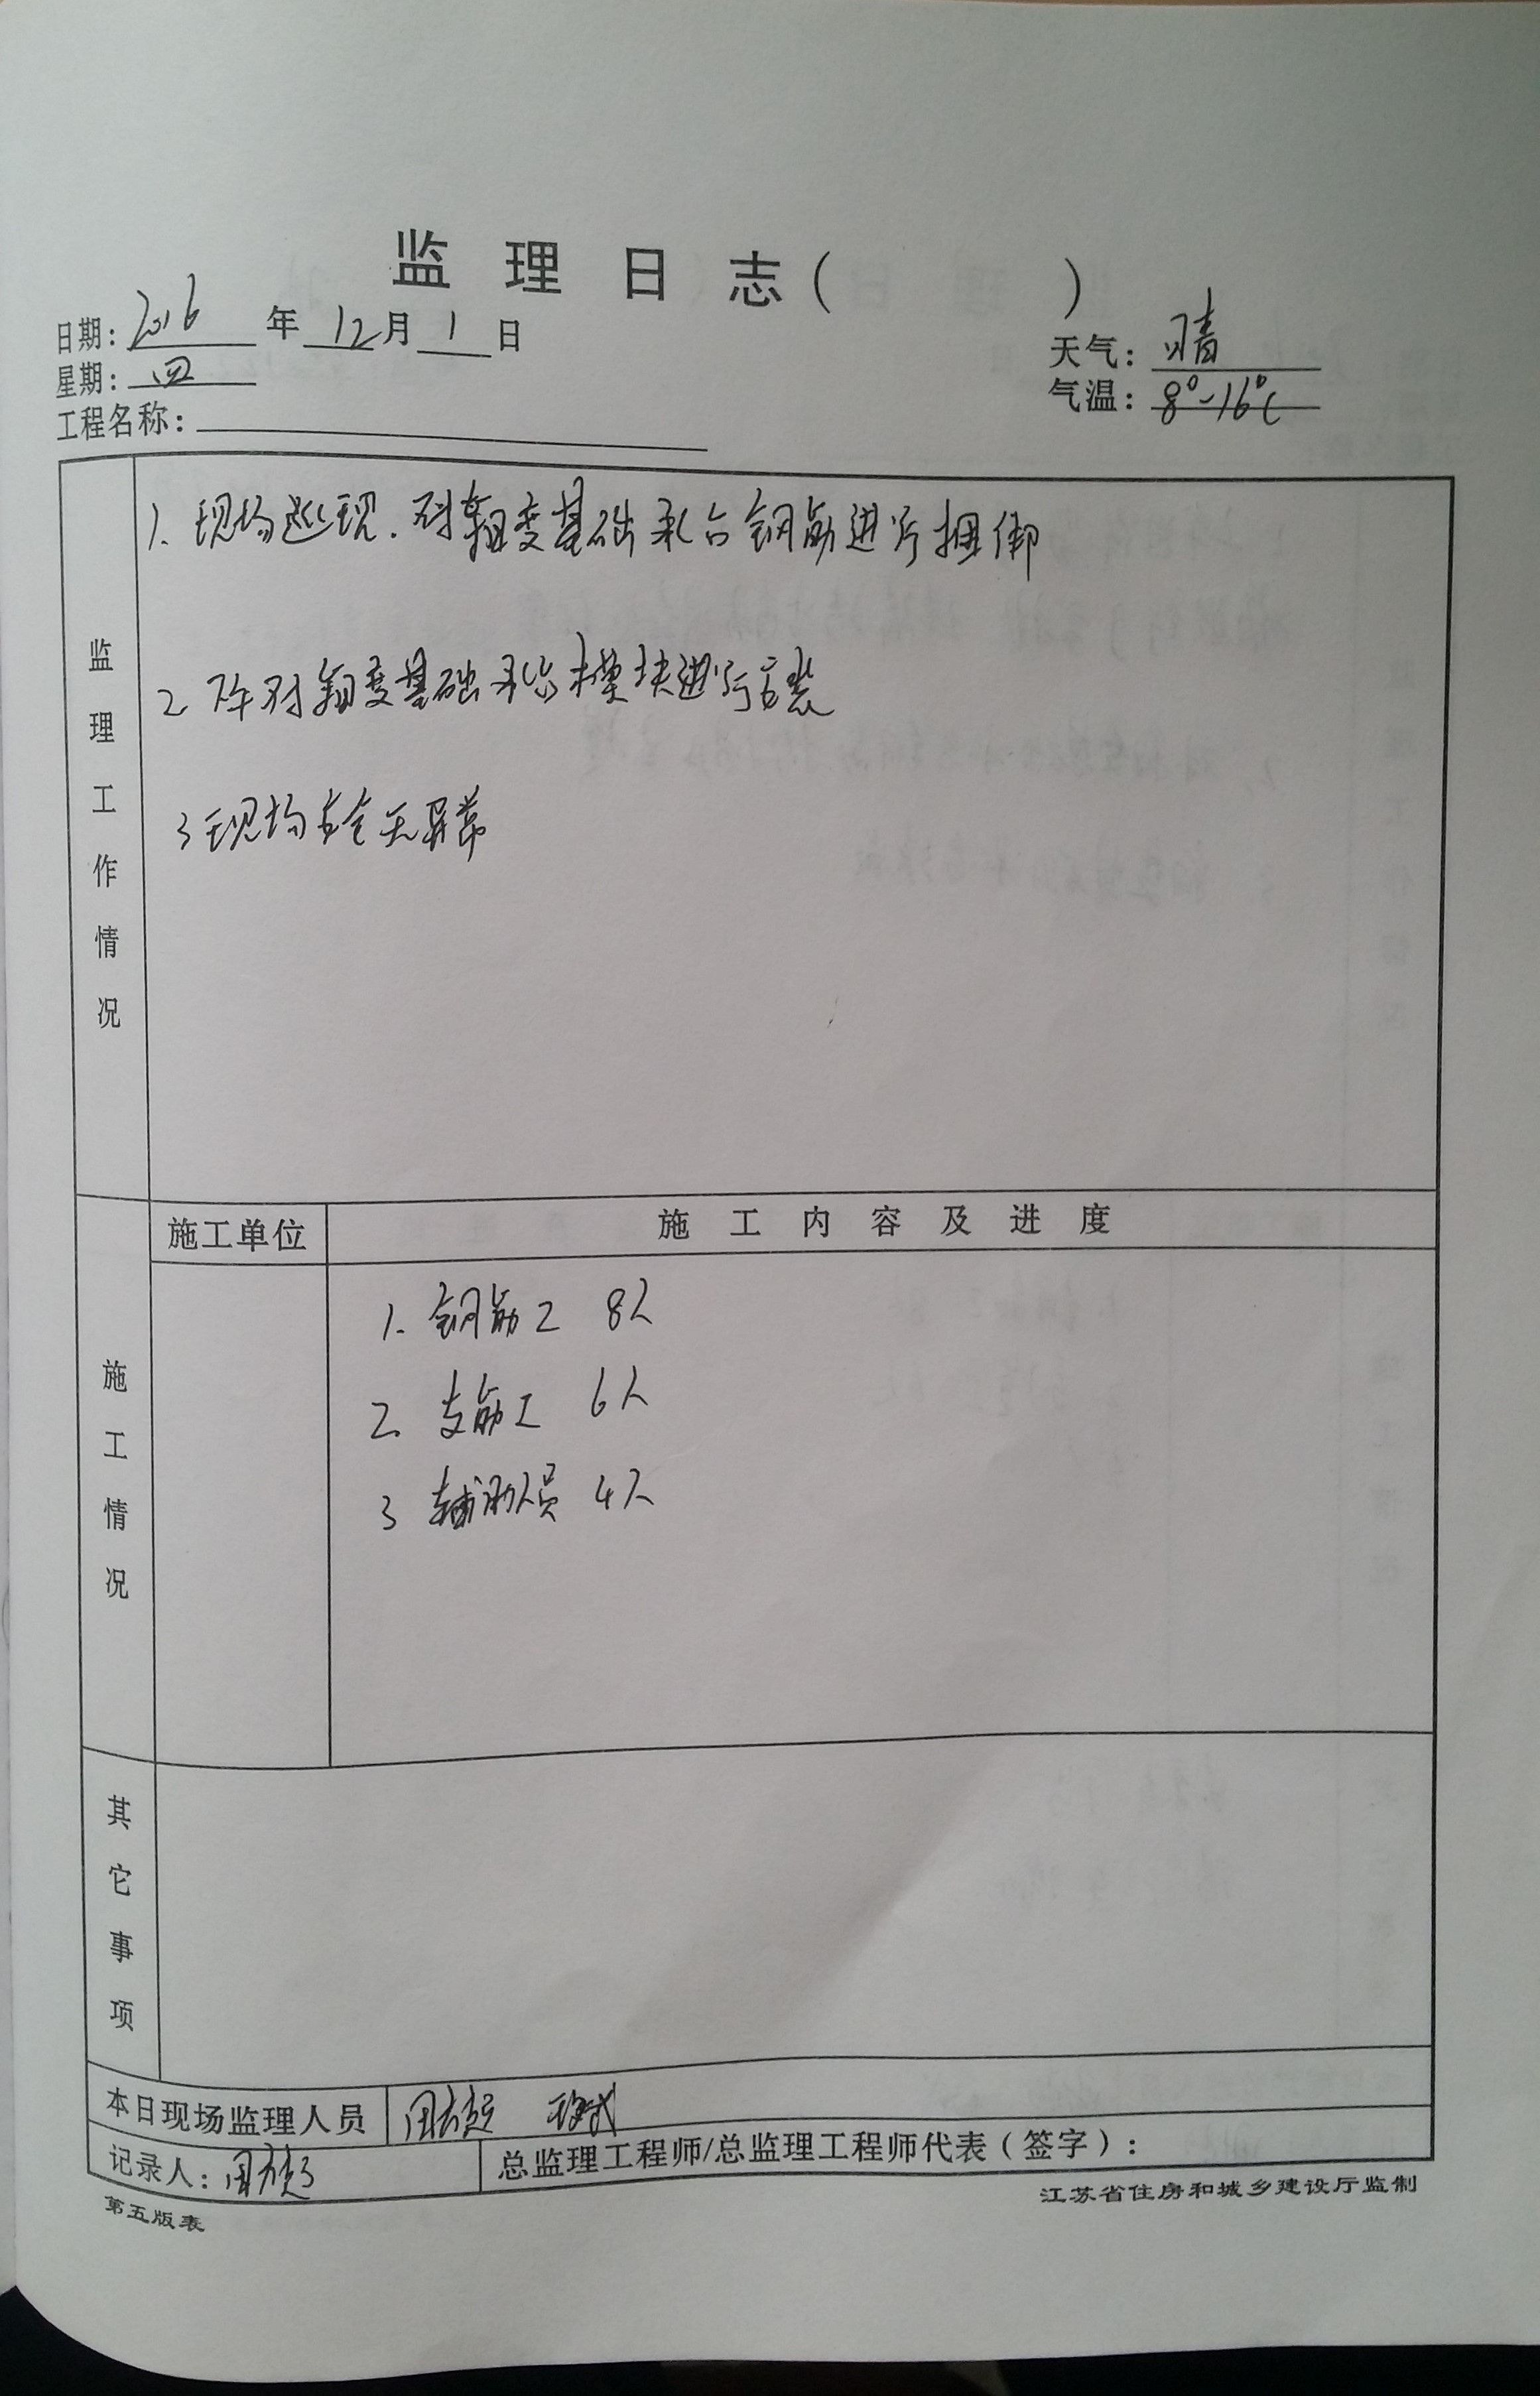 监理日志（ ）
日期：2016年12月1日
天气：晴
星期：四
气温：8°~16°C
工程名称：
监理工作情况
1. 现场巡现.对翱度基础承台钢筋进行捆绑
2 下午对翱度基础承台模块进行安装
3 现场安全无异常
施工情况
施工单位
施工内容及进度
1. 钢筋工 8人
2. 支筋工 6人
3 辅助人员 4人
其它事项
本日现场监理人员
记录人：
总监理工程师/总监理工程师代表（签字）：
第五版表
江苏省住房和城乡建设厅监制